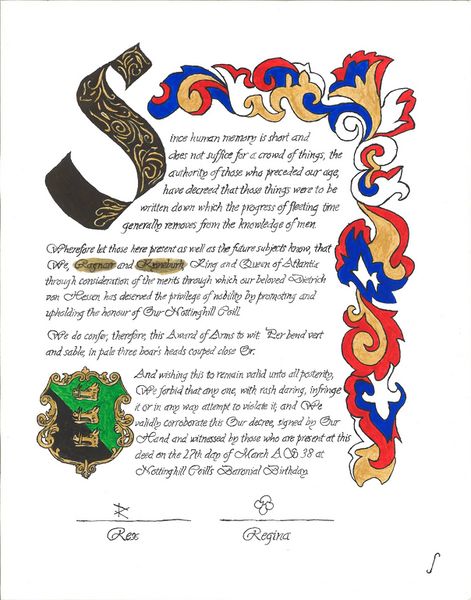 Since human memory is short and
does not suffice for a crowd of things, the
authority of those who preceded our age,
have decreed that those things were to be
written down which the progress of fleeting time
generally removes from the knowledge of men.
Wherefore let those here present as well as the future subjects know, that
We, Ragnarr and Kyneburh, King and Queen of Atlantia
through consideration of the merits through which our beloved Dietrich
von Hessen has deserved the privilege of nobility by promoting and
upholding the honour of Our Nottinghill Coill.
We do confer, therefore, this Award of Arms to wit: Per bend vert
and sable, in pale three boar's heads couped close Or.
And wishing this to remain valid unto all posterity,
We forbid that any one, with rash daring, infringe
it or in any way attempt to violate it, and We
validly corroborate this Our decree, signed by Our
Hand and witnessed by those who are present at this
deed on the 27th day of March AS 38 at
Nottinghill Coill's Baronial Birthday.
Rex Regina